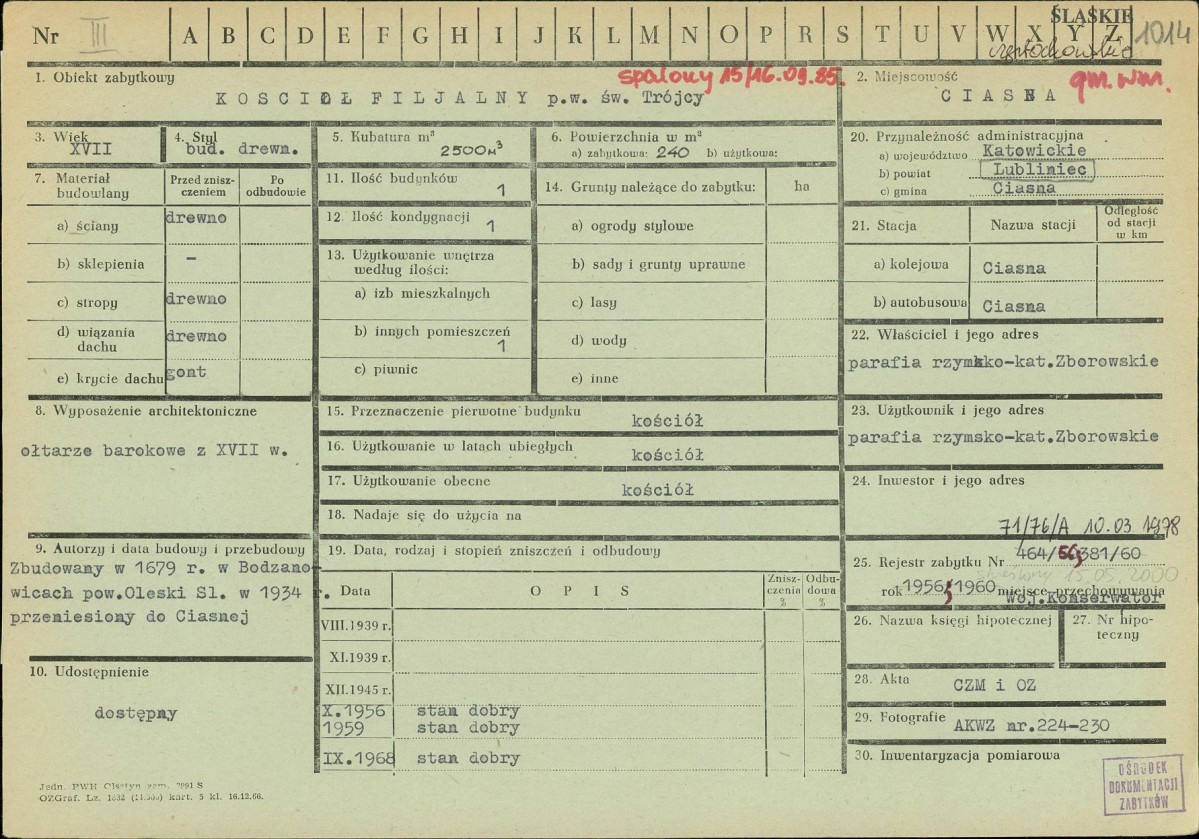 Nr III A B C D E F G H I J K L M N O P R S T U V W X Y Z ŚLĄSKIE 1014
częstochowskie
1. Obiekt zabytkowy spalony 15/16.09.85.
KOSCIÓŁ FILJALNY p.w. św. Trójcy
2. Miejscowość gm.wm.
CIASNA
3. Wiek
XVII
4. Styl
bud. drewn.
5. Kubatura m³
2500 m³
6. Powierzchnia w m²
a) zabytkowa: 240 b) użytkowa:
7. Materiał budowlany
Przed zniszczeniem
Po odbudowie
a) ściany drewno
b) sklepienia –
c) stropy drewno
d) wiązania dachu drewno
e) krycie dachu gont
8. Wyposażenie architektoniczne
ołtarze barokowe z XVII w.
9. Autorzy i data budowy i przebudowy
Zbudowany w 1679 r. w Bodzano-
wicach pow.Oleski Sl. w 1934 r.
przeniesiony do Ciasnej
10. Udostępnienie
dostępny
11. Ilość budynków
1
12. Ilość kondygnacji
1
13. Użytkowanie wnętrza
według ilości:
a) izb mieszkalnych
b) innych pomieszczeń
1
c) piwnic
14. Grunty należące do zabytku: ha
a) ogrody stylowe
b) sady i grunty uprawne
c) lasy
d) wody
e) inne
15. Przeznaczenie pierwotne budynku
kościół
16. Użytkowanie w latach ubiegłych
kościół
17. Użytkowanie obecne
kościół
18. Nadaje się do użycia na
19. Data, rodzaj i stopień zniszczeń i odbudowy
Data OPIS Zniszczenia % Odbudowa %
VIII.1939 r.
XI.1939 r.
XII.1945 r.
X.1956 stan dobry
1959 stan dobry
IX.1968 stan dobry
20. Przynależność administracyjna
a) województwo Katowickie
b) powiat Lubliniec
c) gmina Ciasna
21. Stacja Nazwa stacji Odległość od stacji w km
a) kolejowa Ciasna
b) autobusowa Ciasna
22. Właściciel i jego adres
parafia rzymsko-kat.Zborowskie
23. Użytkownik i jego adres
parafia rzymsko-kat.Zborowskie
24. Inwestor i jego adres
71/76/A 10.03 1978
25. Rejestr zabytku Nr 464/56; 381/60
skreślony 15.05.2000
rok 1956; 1960 miejsce przechowywania
Woj.Konserwator
26. Nazwa księgi hipotecznej
27. Nr hipo-
teczny
28. Akta CZM i OZ
29. Fotografie AKWZ nr.224-230
30. Inwentaryzacja pomiarowa
OŚRODEK
DOKUMENTACJI
ZABYTKÓW
Jedn. PWH Olsztyn zam. S
OZGraf. Lz. 1832 (11.500) kart. 5 kl. 16.12.66.